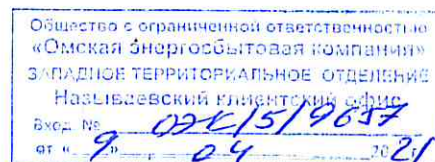 Общество с ограниченной ответственностью
«Омская энергосбытовая компания»
ЗАПАДНОЕ ТЕРРИТОРИАЛЬНОЕ ОТДЕЛЕНИЕ
Называевский клиентский офис
Вход. № ОЭК/5/9657
от «9» 04 2021